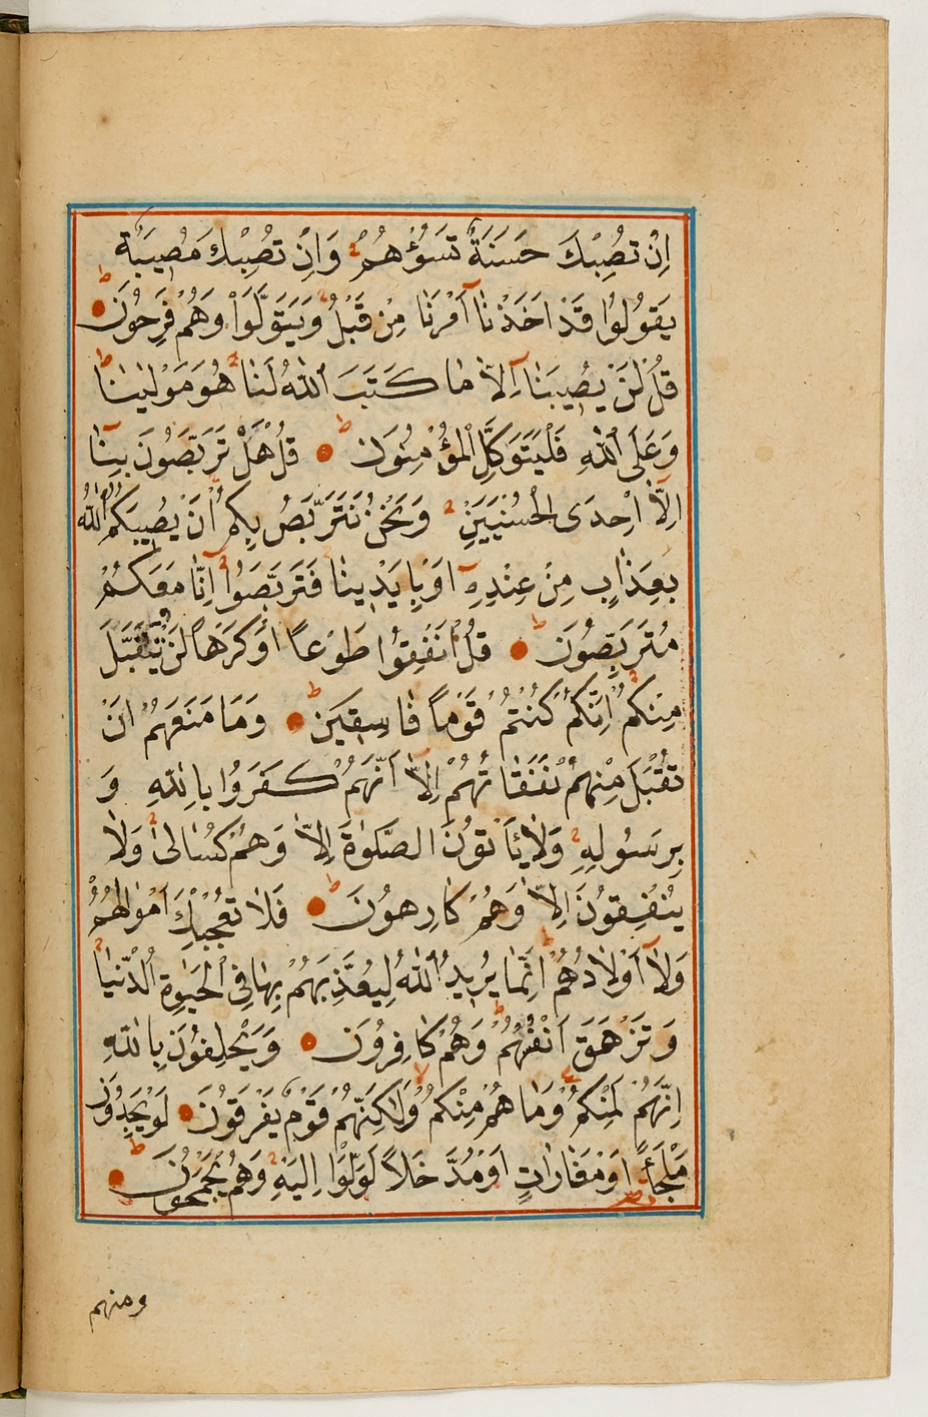 اِنْ تُصِبْكَ حَسَنَةٌ تَسُؤْهُمْ وَاِنْ تُصِبْكَ مُصِيبَةٌ
يَقُولُوا قَدْ اَخَذْنَا اَمْرَنَا مِنْ قَبْلُ وَيَتَوَلَّوْا وَهُمْ فَرِحُونَ
قُلْ لَنْ يُصِيبَنَا اِلَّا مَا كَتَبَ اللّٰهُ لَنَا هُوَ مَوْلٰينَا
وَعَلَى اللّٰهِ فَلْيَتَوَكَّلِ الْمُؤْمِنُونَ قُلْ هَلْ تَرَبَّصُونَ بِنَا
اِلَّا اِحْدَى الْحُسْنَيَيْنِ وَنَحْنُ نَتَرَبَّصُ بِكُمْ اَنْ يُصِيبَكُمُ اللّٰهُ
بِعَذَابٍ مِنْ عِنْدِهِ اَوْ بِاَيْدِينَا فَتَرَبَّصُوا اِنَّا مَعَكُمْ
مُتَرَبِّصُونَ قُلْ اَنْفِقُوا طَوْعًا اَوْ كَرْهًا لَنْ يُتَقَبَّلَ
مِنْكُمْ اِنَّكُمْ كُنْتُمْ قَوْمًا فَاسِقِينَ وَمَا مَنَعَهُمْ اَنْ
تُقْبَلَ مِنْهُمْ نَفَقَاتُهُمْ اِلَّا اَنَّهُمْ كَفَرُوا بِاللّٰهِ وَ
بِرَسُولِهِ وَلَا يَأْتُونَ الصَّلٰوةَ اِلَّا وَهُمْ كُسَالٰى وَلَا
يُنْفِقُونَ اِلَّا وَهُمْ كَارِهُونَ فَلَا تُعْجِبْكَ اَمْوَالُهُمْ
وَلَا اَوْلَادُهُمْ اِنَّمَا يُرِيدُ اللّٰهُ لِيُعَذِّبَهُمْ بِهَا فِي الْحَيٰوةِ الدُّنْيَا
وَتَزْهَقَ اَنْفُسُهُمْ وَهُمْ كَافِرُونَ وَيَحْلِفُونَ بِاللّٰهِ
اِنَّهُمْ لَمِنْكُمْ وَمَا هُمْ مِنْكُمْ وَلٰكِنَّهُمْ قَوْمٌ يَفْرَقُونَ لَوْ يَجِدُونَ
مَلْجَأً اَوْ مَغَارَاتٍ اَوْ مُدَّخَلًا لَوَلَّوْا اِلَيْهِ وَهُمْ يَجْمَحُونَ
ومنهم